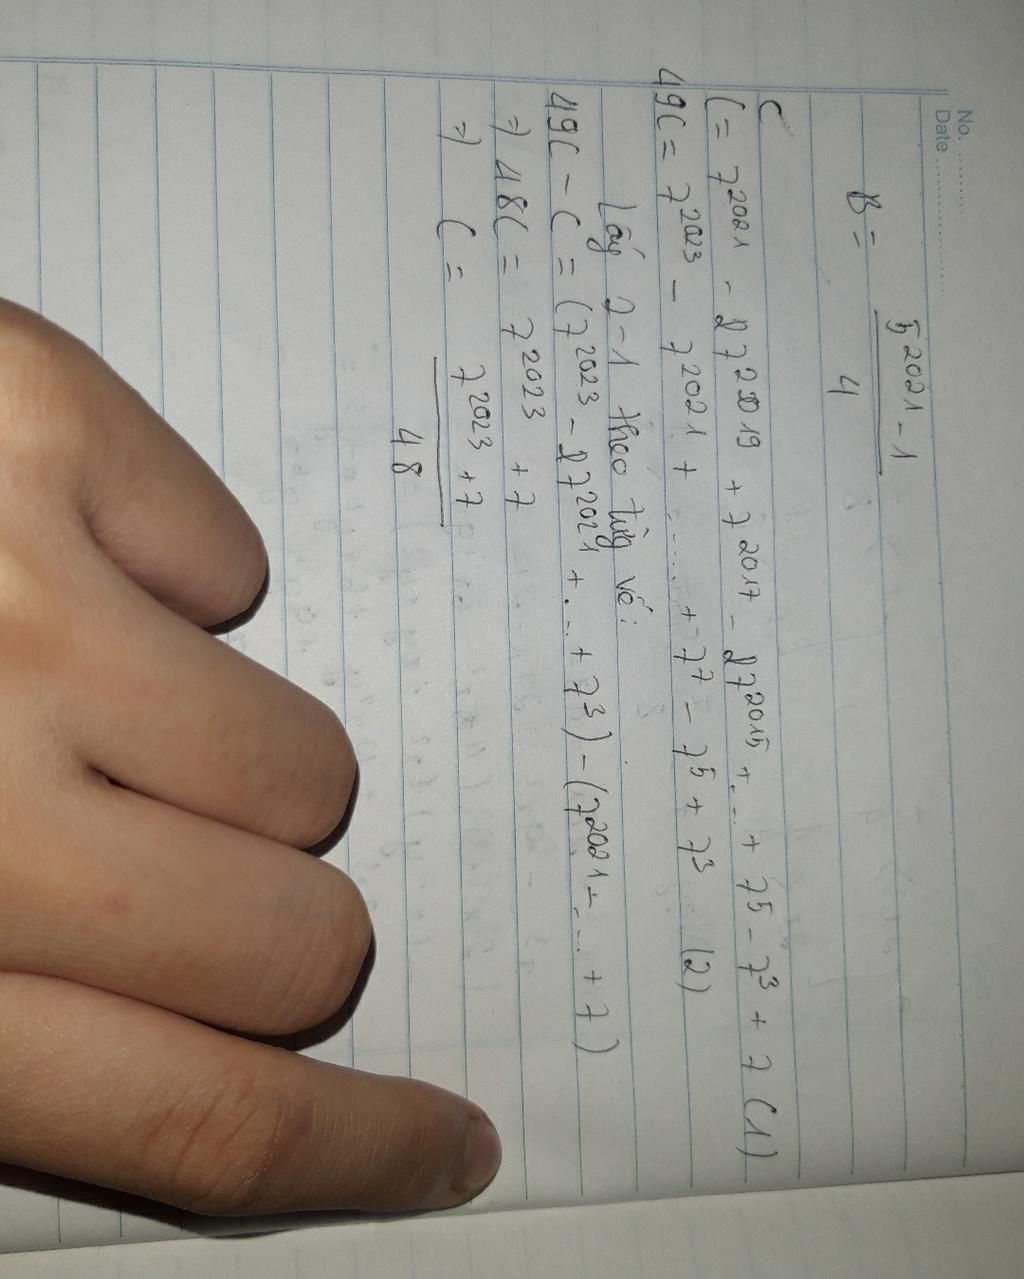 No. ............
Date ........................
5²⁰²¹ - 1
B = ―――
4
C
C = 7²⁰²¹ - 7²⁰¹⁹ + 7²⁰¹⁷ - 7²⁰¹⁵ + ... + 7⁵ - 7³ + 7 (1)
49C = 7²⁰²³ - 7²⁰²¹ + ..... + 7⁷ - 7⁵ + 7³ (2)
Lấy 2-1 theo từng vế:
49C - C = (7²⁰²³ - 7²⁰²¹ + ... + 7³) - (7²⁰²¹ - ... + 7)
=) 48C = 7²⁰²³ + 7
=) C = 7²⁰²³ + 7
48